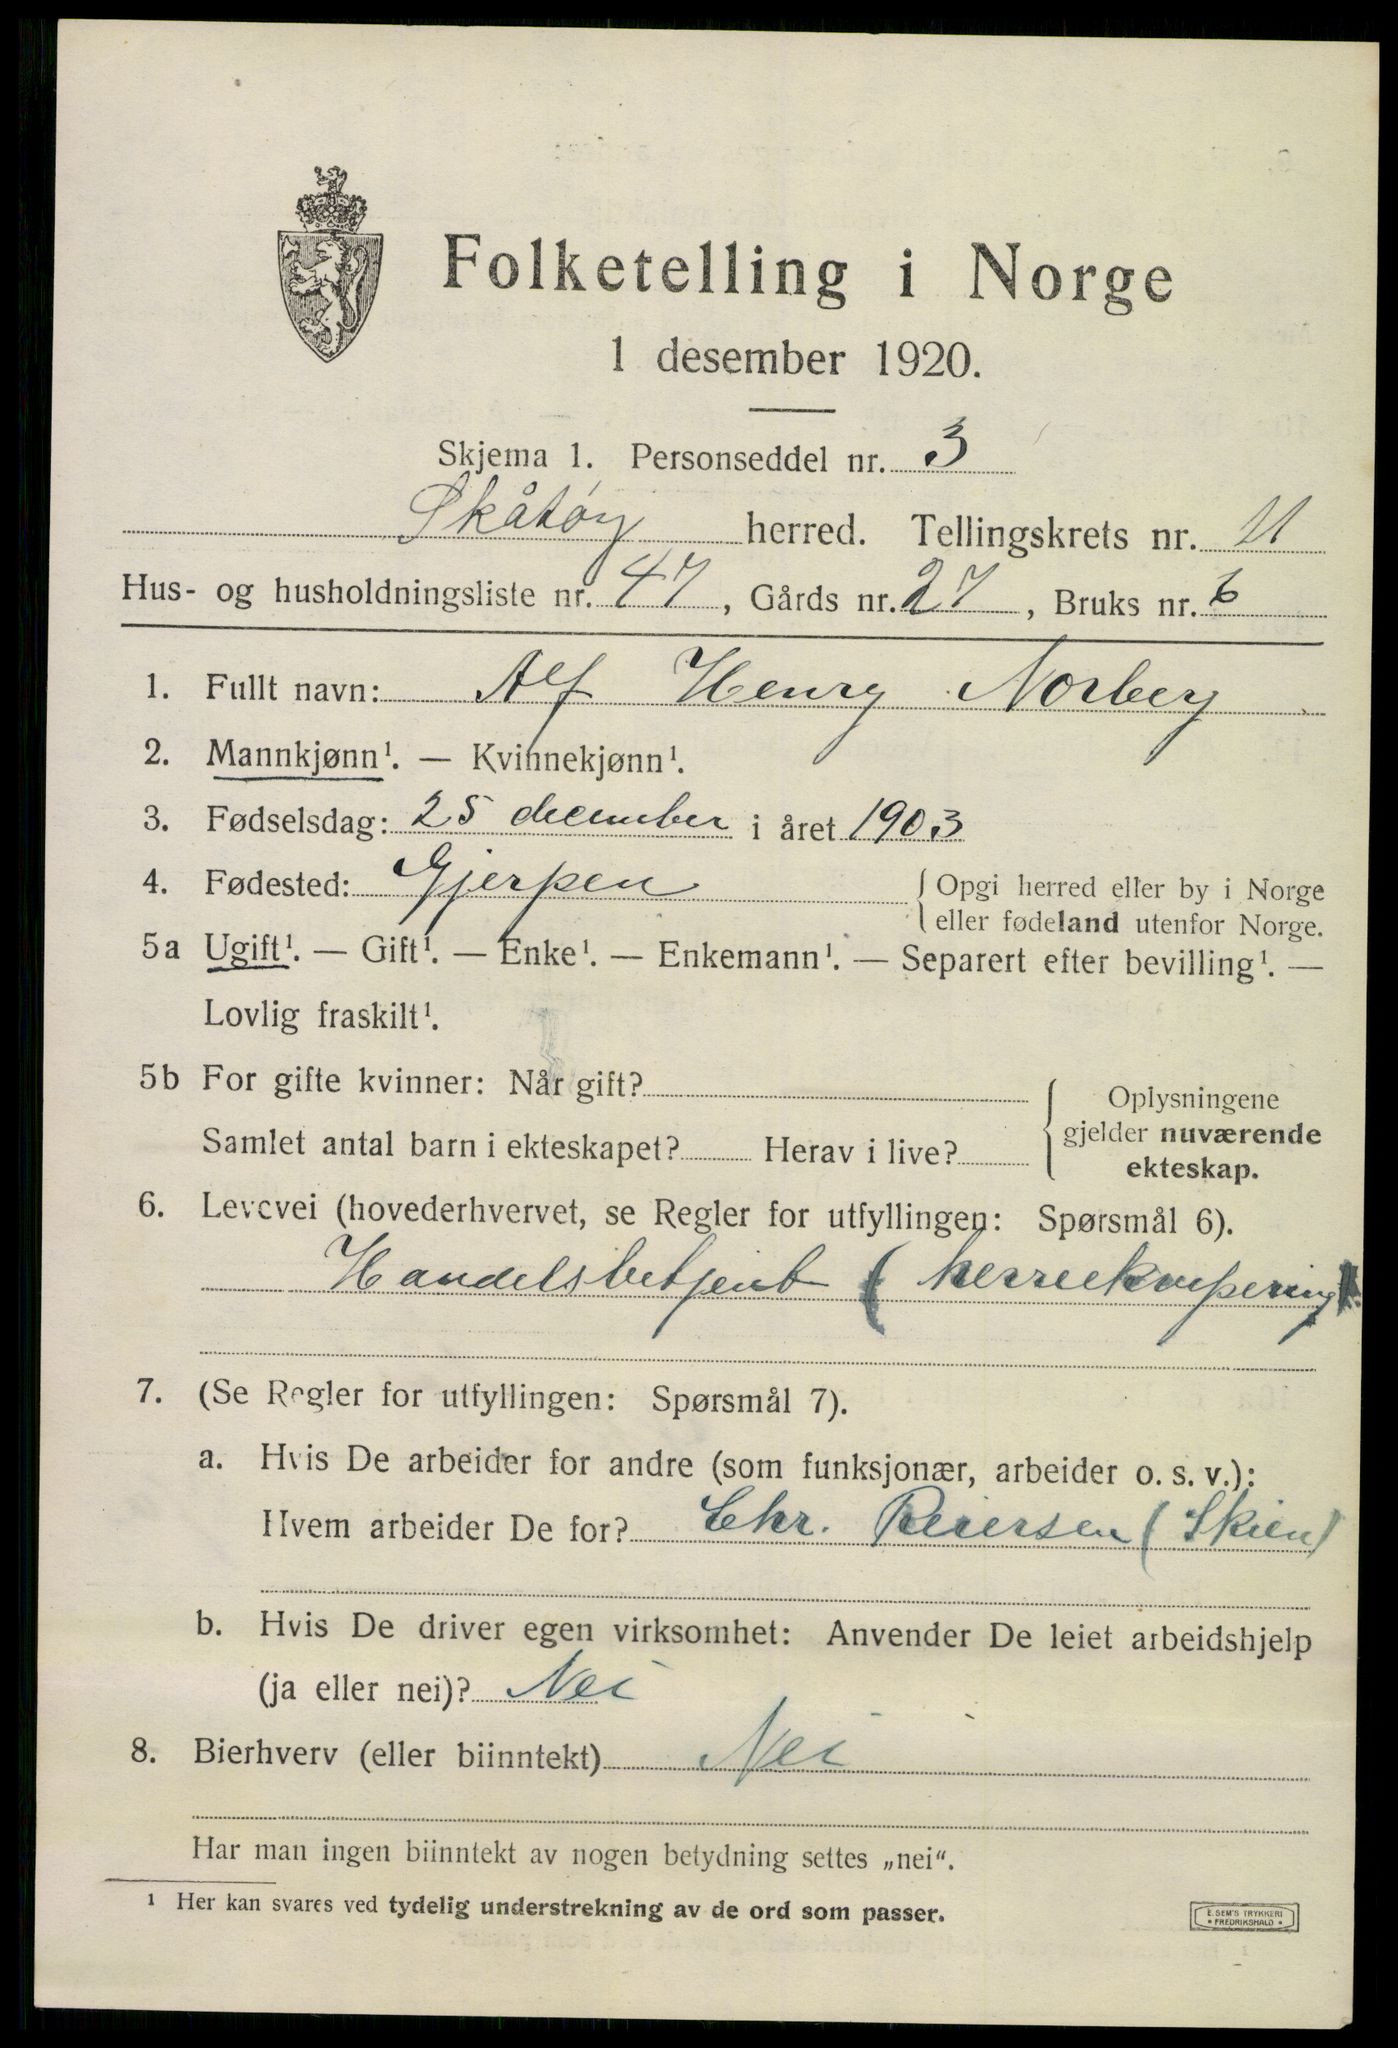 Folketelling i Norge
1 desember 1920.
Skjema 1. Personseddel nr. 3
Skåtøy herred. Tellingskrets nr. 11
Hus- og husholdningsliste nr. 47, Gårds nr. 27, Bruks nr. 6
1. Fullt navn: Alf Henry Norberg
2. Mannkjønn¹. — Kvinnekjønn¹.
3. Fødselsdag: 25 december i året 1903
4. Fødested: Gjerpen {Opgi herred eller by i Norge
eller fødeland utenfor Norge.
5a Ugift¹. — Gift¹. — Enke¹. — Enkemann¹. — Separert efter bevilling¹. —
Lovlig fraskilt¹.
5b For gifte kvinner: Når gift?
Samlet antal barn i ekteskapet? Herav i live?
{Oplysningene
gjelder nuværende
ekteskap.
6. Levevei (hovederhvervet, se Regler for utfyllingen: Spørsmål 6).
Handelsbetjent (herreekvipering)
7. (Se Regler for utfyllingen: Spørsmål 7).
a. Hvis De arbeider for andre (som funksjonær, arbeider o. s. v.):
Hvem arbeider De for? Chr. Reiersen (Skien)
b. Hvis De driver egen virksomhet: Anvender De leiet arbeidshjelp
(ja eller nei)? Nei
8. Bierhverv (eller biinntekt) Nei
Har man ingen biinntekt av nogen betydning settes „nei“.
¹ Her kan svares ved tydelig understrekning av de ord som passer.
E. SEM'S TRYKKERI
• FREDRIKSHALD •